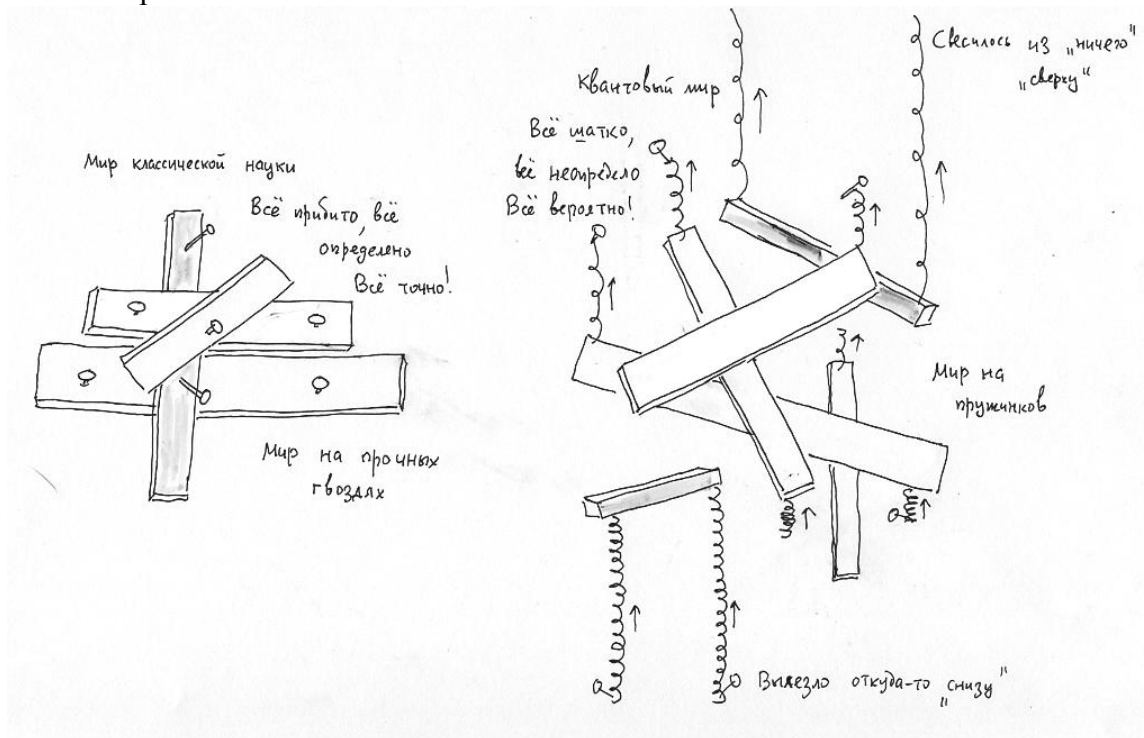 Мир классической науки
Всё прибито, всё
определено
Всё точно!
Мир на прочных
гвоздях
Квантовый мир
Всё шатко,
всё неопредело
Всё вероятно!
Свесилось из „ничего“
„сверху“
Мир на
пружинков
Вылезло откуда-то „снизу“